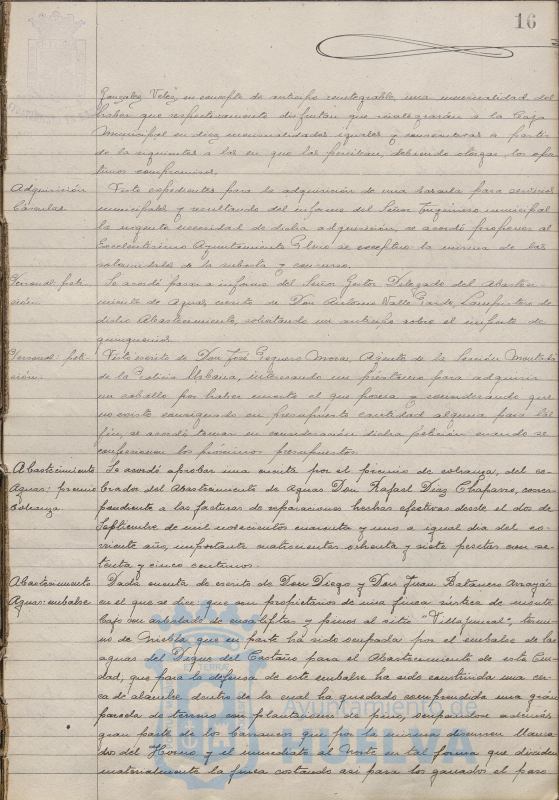 16
Gonzalez Velez en concepto de anticipo reintegrable, una mensualidad del
haber que respectivamente disfrutan que reintegrarán a la Caja
Municipal en diez mensualidades iguales y consecutivas a partir
de la siguiente a la en que las perciban, debiendo otorgar los opor-
tunos compromisos.
Adquisición
Visto expedientes para la adquisición de una para servicios
municipales y resultando del informe del Señor Ingeniero municipal
la urgente necesidad de dicha adquisición, se acordó proponer al
Excelentísimo Ayuntamiento Pleno se exceptúe la misma de las
solemnidades de la subasta y concurso.
Personal: peti-
ción.
Se acordó pasar a informe del Señor Gestor Delegado del Abasteci-
miento de Aguas, escrito de Don Antonio Valle, de
dicho Abastecimiento, solicitando un anticipo sobre el importe de
quinquenios.
Personal: peti-
ción.
Visto escrito de Don José Mora, Agente de la Sección Montada
de la Policía Urbana, interesando un préstamo para adquirir
un caballo por haber muerto el que poseía y considerando que
no existe consignado en presupuesto cantidad alguna para tal
fin, se acordó tomar en consideración dicha petición cuando se
confeccionen los próximos presupuestos.
Abastecimiento
Aguas: premio
Cobranza
Se acordó aprobar una cuenta por el premio de cobranza, del co-
brador del Abastecimiento de Aguas Don Rafael Diaz Chaparro, corres-
pondiente a las facturas de reparaciones hechas efectivas desde el dos de
Septiembre de mil novecientos cuarenta y uno a igual dia del co-
rriente año, importante cuatrocientas ochenta y siete pesetas con se-
tenta y cinco centimos.
Abastecimiento
Aguas: embalse
Dada cuenta de escrito de Don Diego y Don Juan Arrayás
en el que se dice: que son propietarios de una finca rústica de monte
bajo con arbolado de eucaliptos y pinos al sitio "Villajuncal", termi-
no de Niebla, que en parte ha sido ocupada por el embalse de las
aguas del Dique del Castaño para el Abastecimiento de esta Ciu-
dad, que para la defensa de este embalse ha sido construida una cer-
ca de alambre, dentro de la cual ha quedado comprendida una gran
parcela de terreno con plantaciones de pino, ocupandose además
gran parte de los barrancos que por la misma discurren llama-
dos del Horno y el inmediato al Norte en tal forma que dividen
materialmente la finca cortando así para los ganados el paso
TERRA
Ayuntamiento de
HUELVA